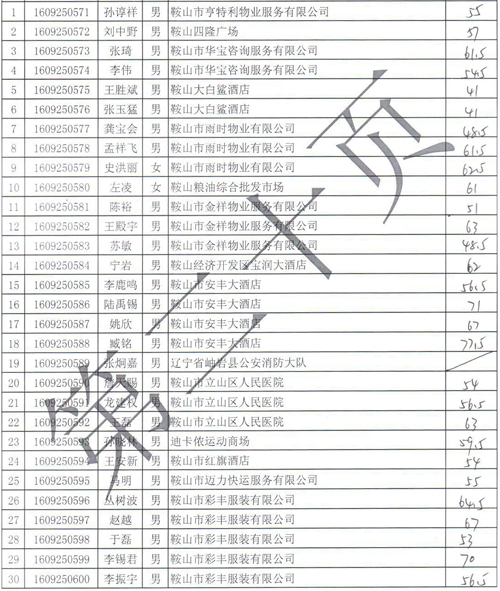 1 1609250571 孙谆祥 男 鞍山市亨特利物业服务有限公司 55
2 1609250572 刘中野 男 鞍山四隆广场 57
3 1609250573 张琦 男 鞍山市华宝咨询服务有限公司 61.5
4 1609250574 李伟 男 鞍山市华宝咨询服务有限公司 54.5
5 1609250575 王胜斌 男 鞍山大白鲨酒店 41
6 1609250576 张玉猛 男 鞍山大白鲨酒店 41
7 1609250577 龚宝会 男 鞍山市雨时物业有限公司 48.5
8 1609250578 孟祥飞 男 鞍山市雨时物业有限公司 61.5
9 1609250579 史洪丽 女 鞍山市雨时物业有限公司 62.5
10 1609250580 左凌 女 鞍山粮油综合批发市场 61
11 1609250581 陈裕 男 鞍山市金祥物业服务有限公司 51
12 1609250582 王殿宇 男 鞍山市金祥物业服务有限公司 63
13 1609250583 苏敏 男 鞍山市金祥物业服务有限公司 48.5
14 1609250584 宁岩 男 鞍山经济开发区宝润大酒店 62
15 1609250585 李鹿鸣 男 鞍山市安丰大酒店 56.5
16 1609250586 陆禹锡 男 鞍山市安丰大酒店 71
17 1609250587 姚欣 男 鞍山市安丰大酒店 67
18 1609250588 臧铭 男 鞍山市安丰大酒店 77.5
19 1609250589 张炯嘉 男 辽宁省岫岩县公安消防大队
20 1609250590 天赐 男 鞍山市立山区人民医院 54
21 1609250591 龙建权 男 鞍山市立山区人民医院 56.5
22 1609250592 王磊 男 鞍山市立山区人民医院 63
23 1609250593 孙晓林 男 迪卡侬运动商场 59.5
24 1609250594 王安新 男 鞍山市红旗酒店 54
25 1609250595 马明 男 鞍山市迈力快运服务有限公司 55
26 1609250596 丛树波 男 鞍山市彩丰服装有限公司 64.5
27 1609250597 赵越 男 鞍山市彩丰服装有限公司 67
28 1609250598 于磊 男 鞍山市彩丰服装有限公司 53
29 1609250599 李锡君 男 鞍山市彩丰服装有限公司 70
30 1609250600 李振宇 男 鞍山市彩丰服装有限公司 56.5
第二十页